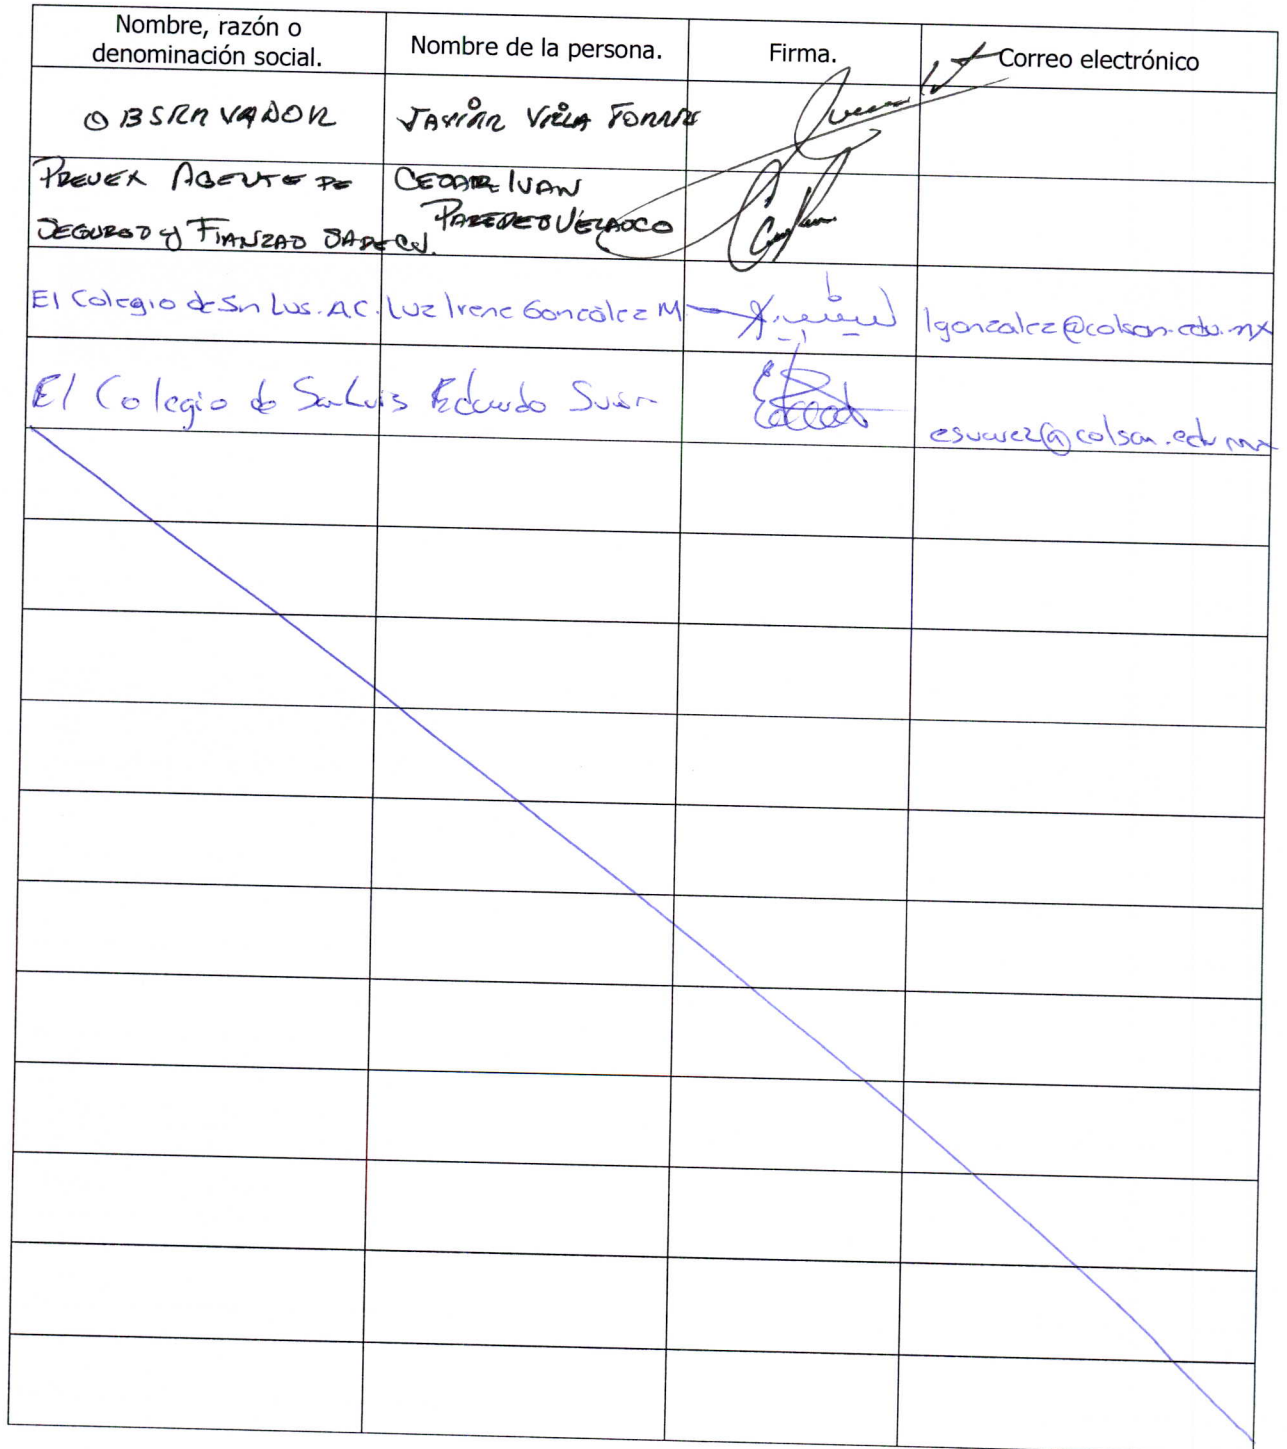 Nombre, razón o
denominación social.
Nombre de la persona.
Firma.
Correo electrónico
OBSERVADOR
JAVIER VILLA TORRES
PREVEX AGENTE DE
SEGUROS y FIANZAS SA DE CV.
CESAR IVAN
PAREDES VELASCO
El Colegio de Sn Luis. A.C.
Luz Irene González M
lgonzalez@colsan.edu.mx
El Colegio de San Luis
Eduardo Suár
esuarez@colsan.edu.mx